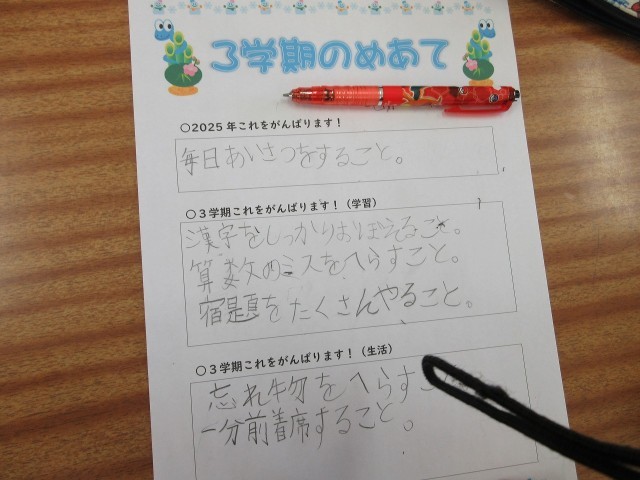 3学期のめあて
○2025年これをがんばります！
毎日あいさつをすること。
○3学期これをがんばります！（学習）
漢字をしっかりおぼえること。
算数のミスをへらすこと。
宿題をたくさんやること。
○3学期これをがんばります！（生活）
忘れ物をへらすこ
一分前着席すること。